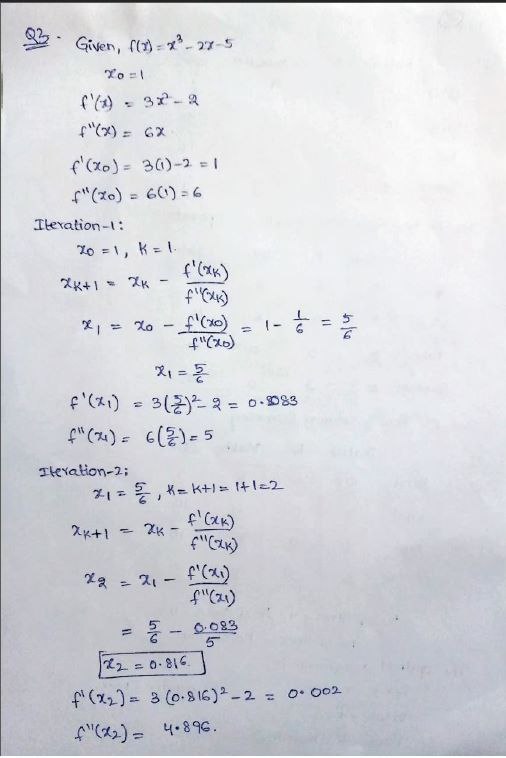 Q3. Given, f(x) = x³ - 2x - 5
x₀ = 1
f'(x) = 3x² - 2
f''(x) = 6x
f'(x₀) = 3(1) - 2 = 1
f''(x₀) = 6(1) = 6
Iteration-1:
x₀ = 1, K = 1.
xK+1 = xK - f'(xK) / f''(xK)
x₁ = x₀ - f'(x₀) / f''(x₀) = 1 - 1/6 = 5/6
x₁ = 5/6
f'(x₁) = 3(5/6)² - 2 = 0.083
f''(x₁) = 6(5/6) = 5
Iteration-2:
x₁ = 5/6, K = K+1 = 1+1 = 2
xK+1 = xK - f'(xK) / f''(xK)
x₂ = x₁ - f'(x₁) / f''(x₁)
= 5/6 - 0.083/5
x₂ = 0.816
f'(x₂) = 3(0.816)² - 2 = 0.002
f''(x₂) = 4.896.